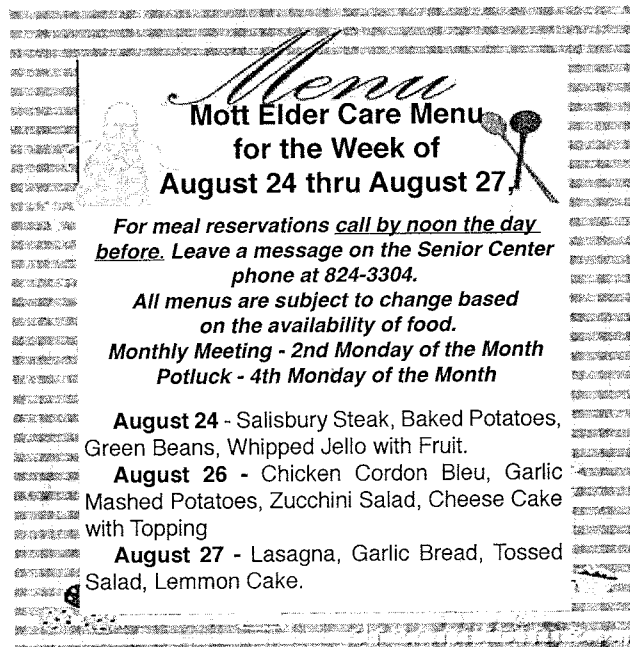 Menu
Mott Elder Care Menu
for the Week of
August 24 thru August 27,
For meal reservations call by noon the day
before. Leave a message on the Senior Center
phone at 824-3304.
All menus are subject to change based
on the availability of food.
Monthly Meeting - 2nd Monday of the Month
Potluck - 4th Monday of the Month
August 24 - Salisbury Steak, Baked Potatoes,
Green Beans, Whipped Jello with Fruit.
August 26 - Chicken Cordon Bleu, Garlic
Mashed Potatoes, Zucchini Salad, Cheese Cake
with Topping
August 27 - Lasagna, Garlic Bread, Tossed
Salad, Lemmon Cake.